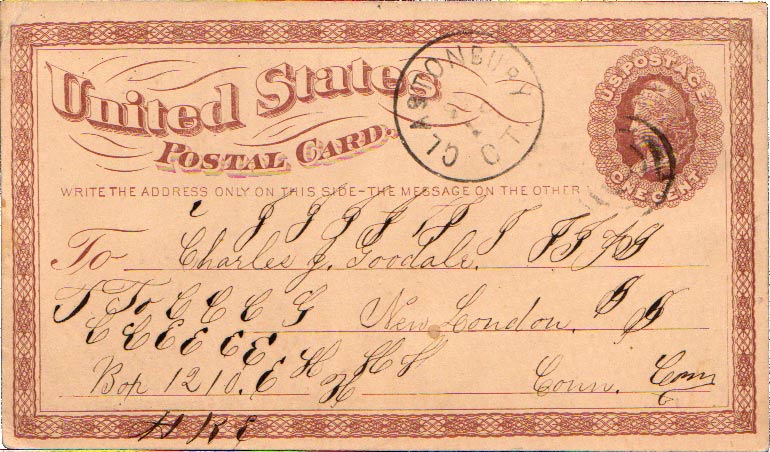 United States
POSTAL CARD.
GLASTONBURY CT.
U.S. POSTAGE
ONE CENT
WRITE THE ADDRESS ONLY ON THIS SIDE - THE MESSAGE ON THE OTHER
To Charles J. Goodale.
T To C C C G New London.
C C E E E E
Box 1210. E H H H H Conn. Conn
H K E